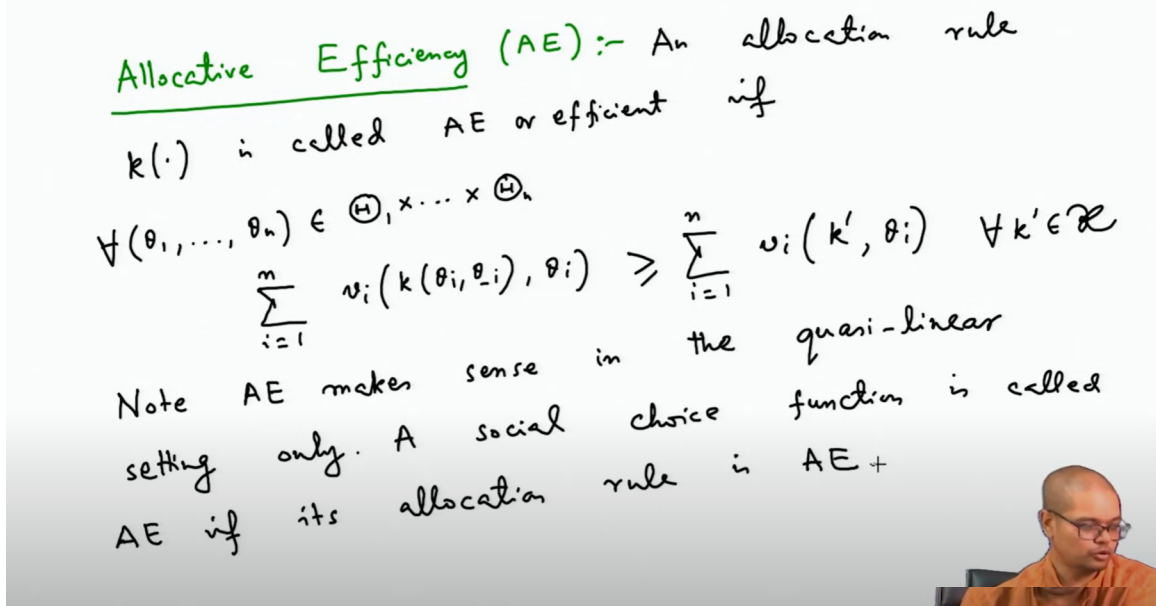 Allocative Efficiency (AE) :- An allocation rule
k(·) is called AE or efficient if
∀(θ₁, ..., θₙ) ∈ Θ₁ × ... × Θₙ
∑ᵢ₌₁ⁿ vᵢ(k(θᵢ, θ₋ᵢ), θᵢ) ⩾ ∑ᵢ₌₁ⁿ vᵢ(k', θᵢ) ∀k' ∈ 𝒦
Note AE makes sense in the quasi-linear
setting only. A social choice function is called
AE if its allocation rule is AE +